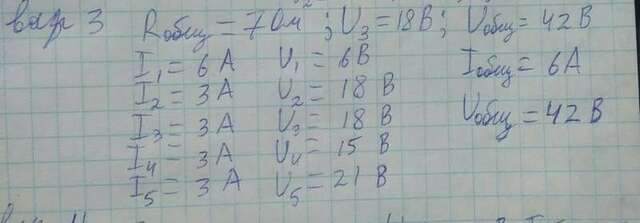 вар 3 Rобщ = 7 Ом ; U₃ = 18 В ; Uобщ = 42 В
I₁ = 6 А U₁ = 6 В Iобщ = 6 А
I₂ = 3 А U₂ = 18 В Uобщ = 42 В
I₃ = 3 А U₃ = 18 В
I₄ = 3 А U₄ = 15 В
I₅ = 3 А U₅ = 21 В